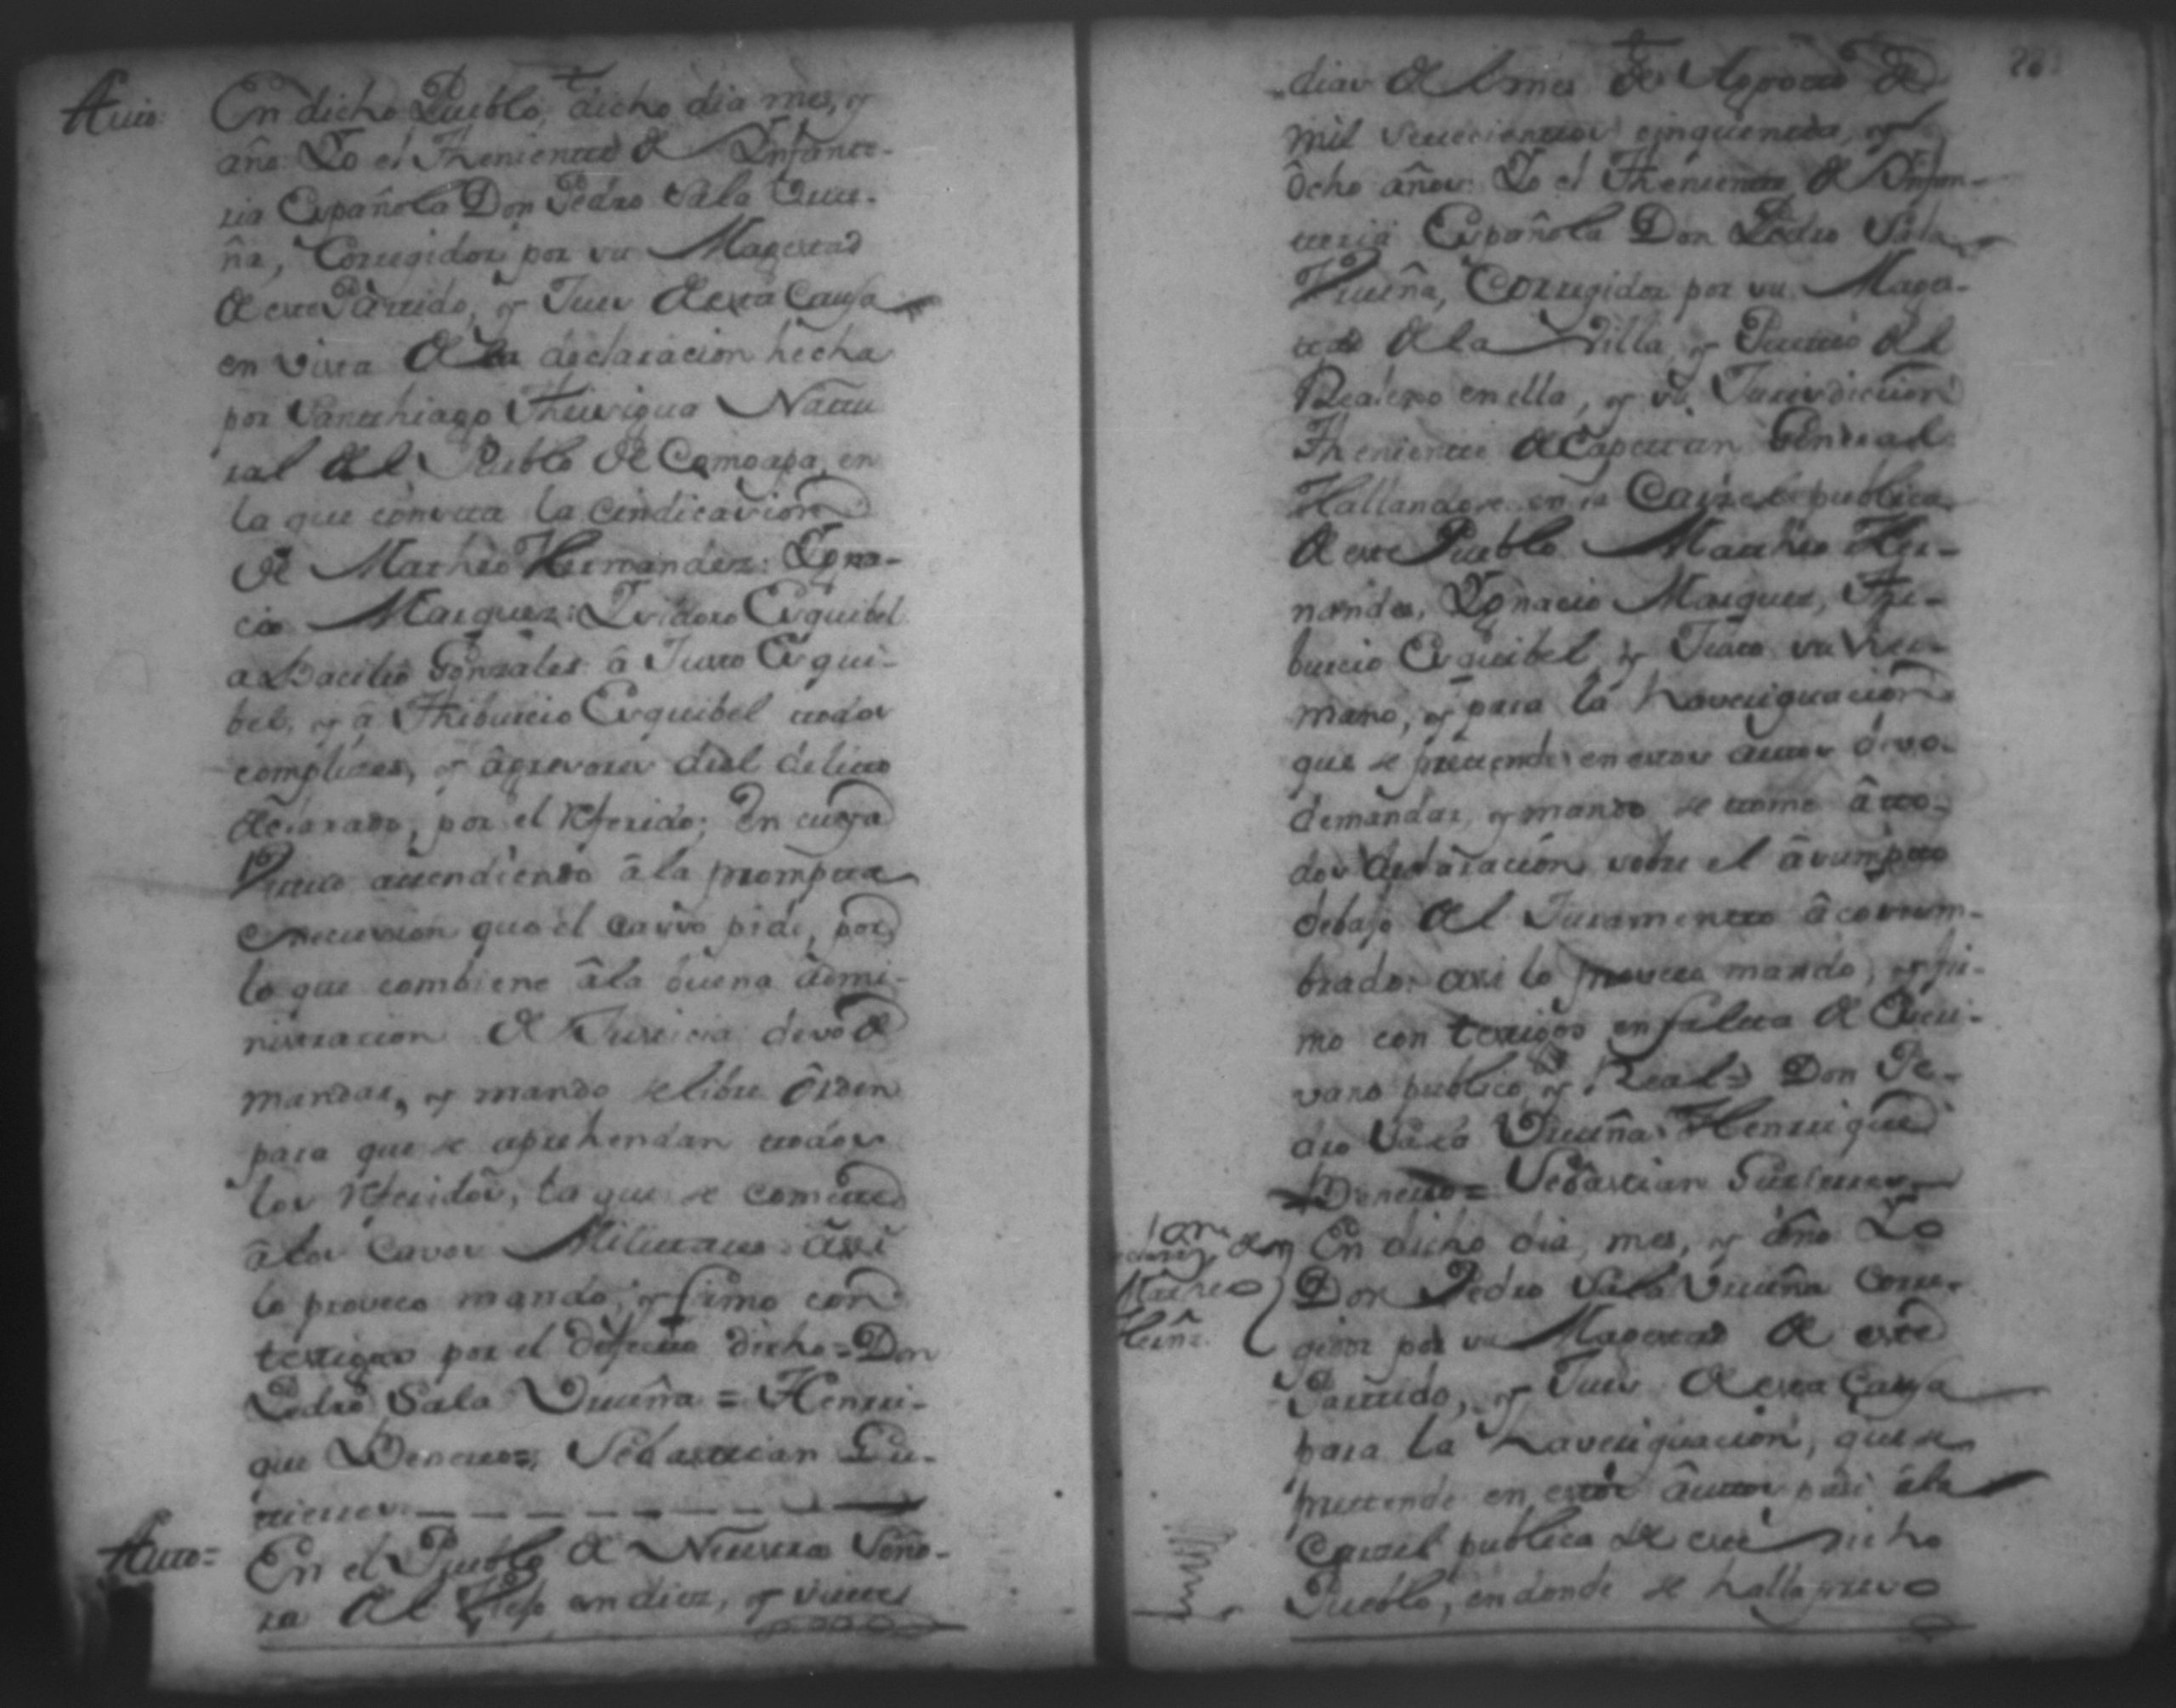 Auto
En dicho Pueblo, dicho dia mes, y
año Yo el Theniente de Ynfante-
ria Española Don Pedro Sala Vicu-
ña, Corregidor por su Magestad
de este Partido, y Juez de esta Causa
en vista de la declaracion hecha
por Santhiago Natu
ral del Pueblo de Comoapa, en
la que consta la cindicasion
de Matheo Hernandez: Ygna-
cio Marquez: Ysidoro Esquibel
a Bacilio Gonzales â Juan Esqui-
bel, y â Thiburcio Esquibel todos
complises, y âgresores del delito
declarado, por el referido; En cuya
Vista atendiendo â la prompta
execusion que el casso pide, por
lo que combiene âla buena admi-
nistracion de Justicia devo de
mandar, y mando se libre Ôrden
para que se aprehendan todos
los referidos, la que se comete
â los Cavos Militares assi
lo proveeo mando, y firmo con
testigos por el defecto dicho = Don
Pedro Sala Vicuña = Henrri-
que Benetes = Sebastian Gu-
tierres
Auto =
En el Pueblo de Nuestra Seño-
ra del en diez, y siete
dias del mes de Agosto de
mil setecientos cinquenta, y
Ôcho años Yo el Theniente de Ynfan-
teria Española Don Pedro Sala
Vicuña, Corregidor por su Mages-
tad de la Villa, y Puerto del
Realexo en ella, y su Jurisdiccion
Theniente de Capitan General
Hallandose en la Carzel publica
de este Pueblo Matheo Her-
nandes, Ygnacio Marques, Thi-
burcio Esquibel, y Juan su her-
mano, y para la haveriguacion
que se pretende en estos autos devo
demandar, y mando se tome â to-
dos declaracion sobre el âsumpto
debajo del Juramento âcostum-
brado: assi lo proveeo mando, y fir-
mo con testigos en falta de Escri-
vano publico, y Real = Don Pe-
dro Sala Vicuña = Henrrique
Benetes = Sebastian Gutierres
de
Matheo
Hernz.
En dicho dia, mes, y año Yo
Don Pedro Sala Vicuña Corre-
gidor por su Magestad de este
Partido, y Juez de esta Causa
para la haveriguacion, que se
pretende en estos âutos pasé âla
Carzel publica de este dicho
Pueblo, en donde se halla preso